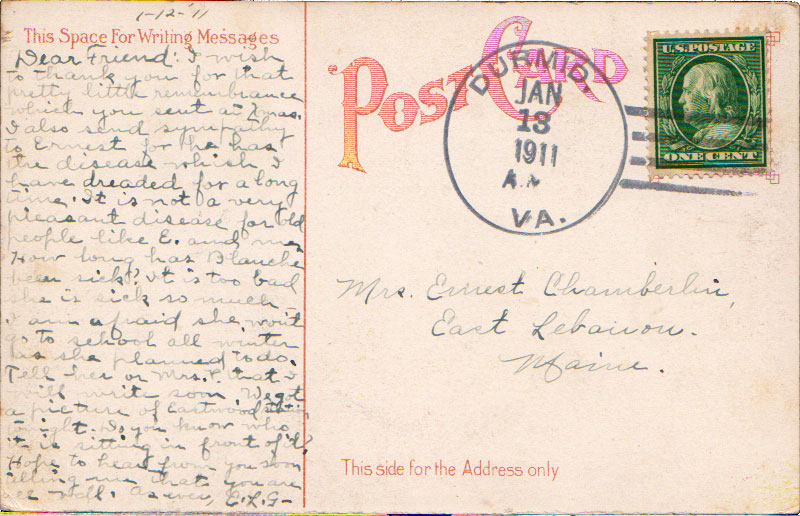 1-12-'11
This Space For Writing Messages
Dear Friend: I wish
to thank you for that
pretty little remembrance
which you sent at Xmas.
I also send sympathy
to Ernest for he has
the disease which I
have dreaded for a long
time. It is not a very
pleasant disease for old
people like E. and me.
How long has Blanche
been sick? It is too bad
she is sick so much.
I am afraid she won't
go to school all winter
as she planned to do.
Tell her or Mrs. P. that I
will write soon. We got
a picture of Eastwood
tonight. Do you know who
it is sitting in front of it?
Hope to hear from you soon
telling me that you are
all well. As ever, E.L.G-
POST CARD
DURMID,
JAN
13
1911
VA.
U.S. POSTAGE
ONE CENT
Mrs. Ernest Chamberlin,
East Lebanon.
Maine.
This side for the Address only